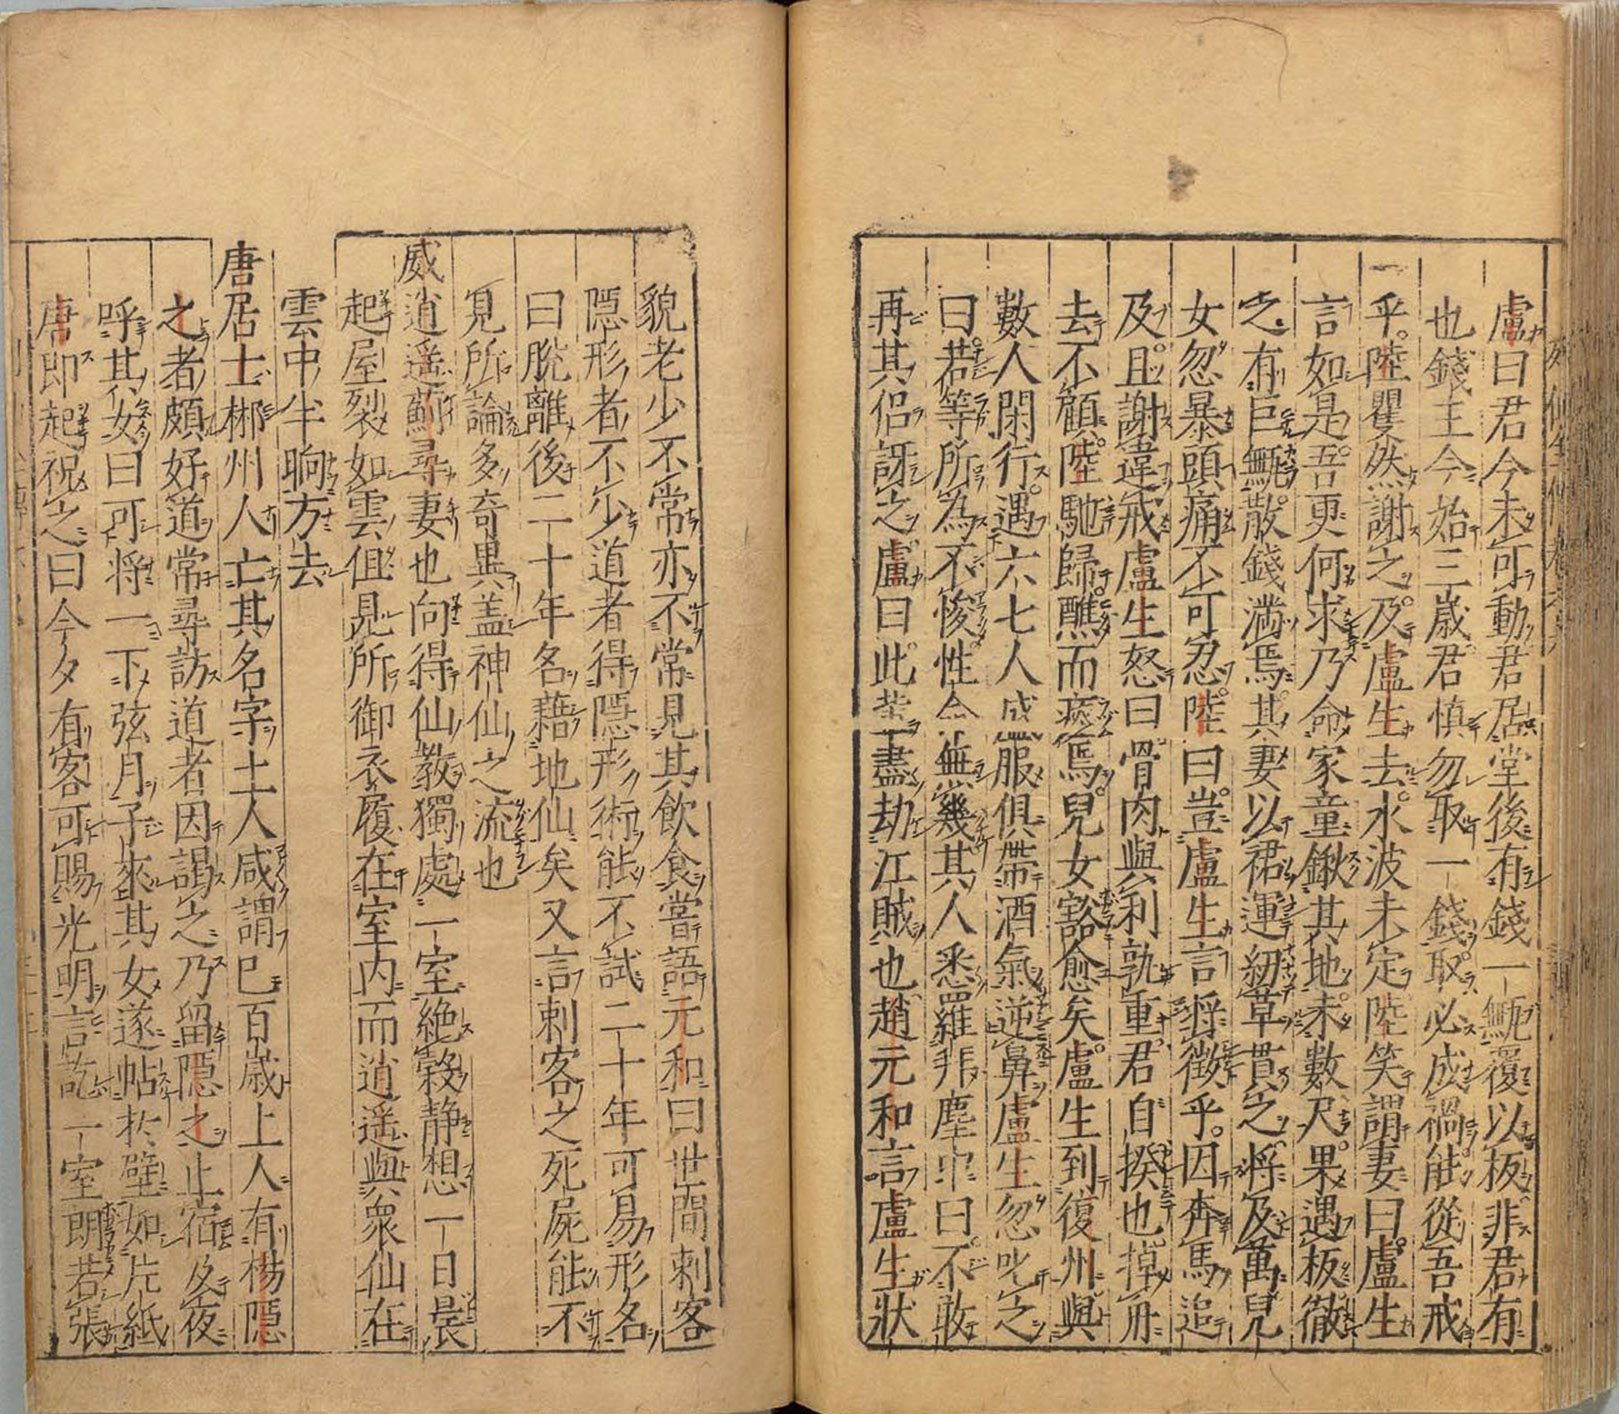 盧曰君今未可動君居堂後有錢一甌覆以板非君有
也錢主今始三歲君慎勿取一錢取必成禍能從吾戒
乎陸矍然謝之及盧生去水波未定陸笑謂妻曰盧生
言如是吾更何求乃命家童鍬其地未數尺果遇板徹
之有巨甌散錢滿焉其妻以裙運紉草貫之將及萬兒
女忽暴頭痛不可忍陸曰豈盧生言將徵乎因奔馬追
及且謝違戒盧生怒曰骨肉與利孰重君自揆也掉舟
去不顧陸馳歸醮而瘞焉兒女豁愈矣盧生到復州與
數人閑行遇六七人盛服俱帶酒氣逆鼻盧生忽叱之
曰若等所為不悛性命無幾其人悉羅拜塵中曰不敢
再其侶訝之盧曰此輩盡劫江賊也趙元和言盧生狀
貌老少不常亦不常見其飲食嘗語元和曰世間刺客
隱形者不少道者得隱形術能不試二十年可易形名
曰脫離後二十年名籍地仙矣又言刺客之死屍能不
見所論多奇異蓋神仙之流也
戚逍遙薊尋妻也向得仙教獨處一室絕穀靜想一日晨
起屋裂如雲但見所御衣履在室內而逍遙與眾仙在
雲中半晌方去
唐居士郴州人亡其名字土人咸謂巳百歲上人有楊隱
之者頗好道常尋訪道者因謁之乃留隱之止宿及夜
呼其女曰可将一下弦月子來其女遂帖於壁如片紙
唐即起祝之曰今夕有客可賜光明言訖一室朗若張